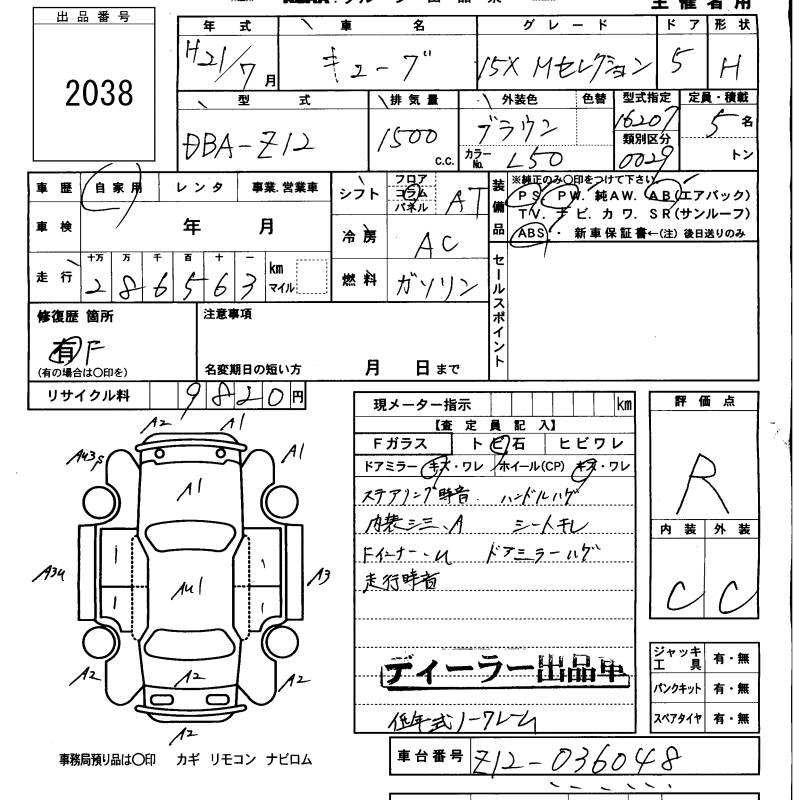 主催者用
出品番号
2038
年式 車名 グレード ドア 形状
H21/7月 キューブ 15X Mセレクション 5 H
型式 排気量 外装色 色替 型式指定 定員・積載
DBA-Z12 1500 c.c. ブラウン 16207 5名
カラーNo. L50 類別区分 0029 トン
車歴 自家用 レンタ 事業.営業車
車検 年 月
走行 十万 万 千 百 十 一 km マイル
2 8 6 5 6 3
シフト フロア コラム パネル AT
冷房 AC
燃料 ガソリン
装備品 ※純正のみ〇印をつけて下さい
PS. PW. 純AW. AB(エアバック)
TV. ナビ. カワ. SR(サンルーフ)
ABS. ・ 新車保証書←(注) 後日送りのみ
セールスポイント
修復歴 箇所
有 F
(有の場合は〇印を)
注意事項
名変期日の短い方 月 日まで
リサイクル料 9820円
A2 A1
AU3S A1
A1
A3U AU1 A3
A2 A2 A2
A2
事務局預り品は〇印 カギ リモコン ナビロム
現メーター指示 km
【査定員記入】
Fガラス トビ石 ヒビワレ
ドアミラー キズ・ワレ ホイール(CP) キズ・ワレ
ステアリング時音 ハンドルハゲ
内装シミ、A シートキレ
Fインナー、U ドアミラーハゲ
走行時音
ディーラー出品車
低年式ノークレーム
評価点
R
内装 外装
C C
ジャッキ工具 有・無
パンクキット 有・無
スペアタイヤ 有・無
車台番号 Z12-036048